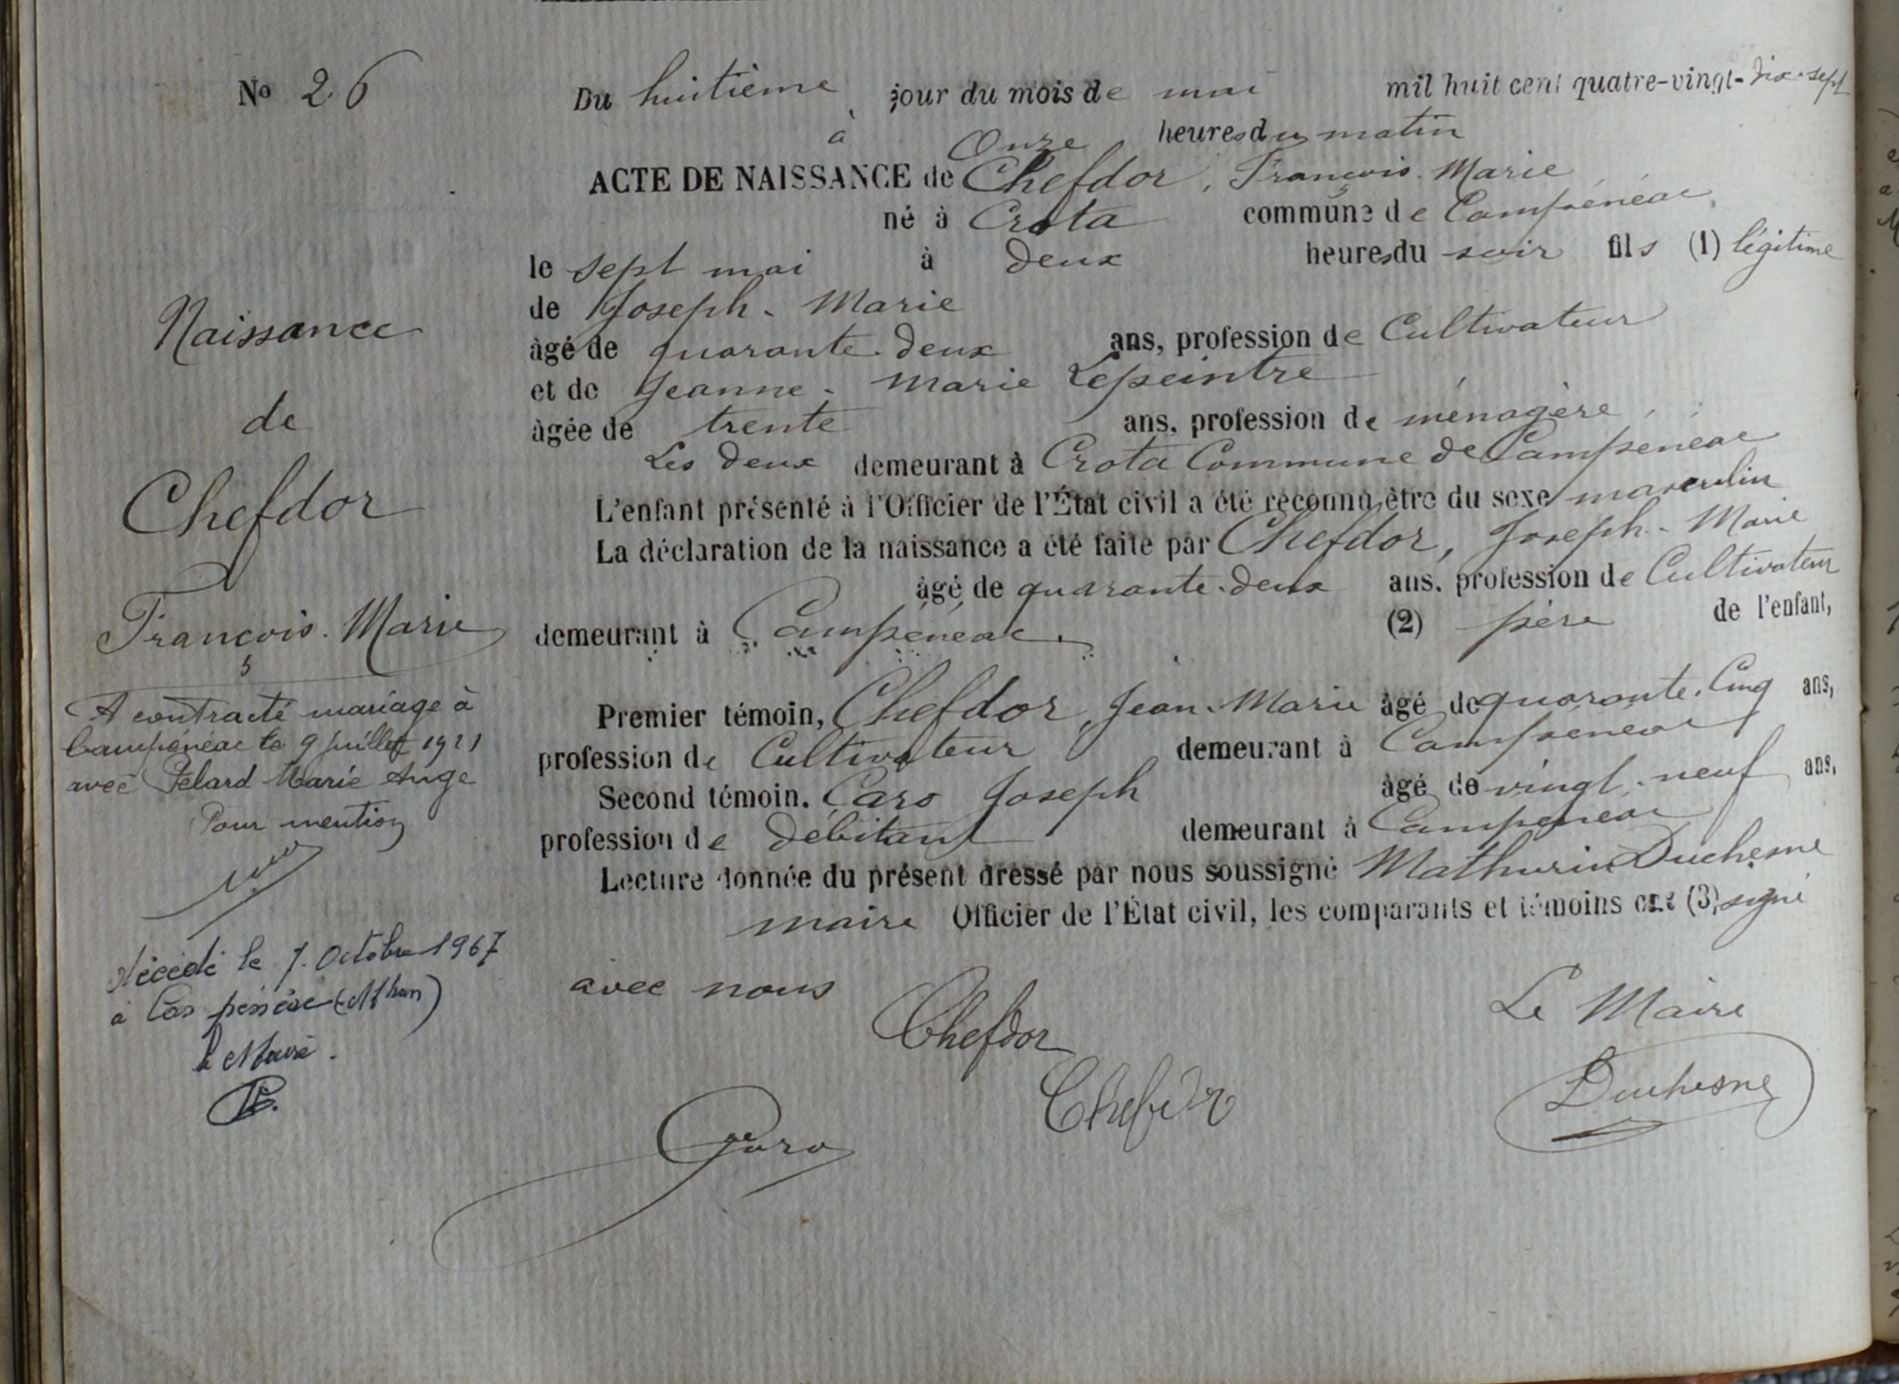 No 26
Naissance
de
Chefdor
François. Marie
A contracté mariage à
Campénéac le 9 juillet 1921
avec Pelard Marie Ange
Pour mention
décédé le 7 Octobre 1967
à Campénéac (Mhan)
le Maire.
Du huitième jour du mois de mai mil huit cent quatre-vingt-dix-sept
à Onze heures du matin
ACTE DE NAISSANCE de Chefdor, François. Marie
né à Crota commune de Campénéac,
le sept mai à deux heures du soir fils (1) légitime
de Joseph-Marie
âgé de quarante-deux ans, profession de Cultivateur
et de Jeanne-Marie Lepeintre
âgée de trente ans, profession de ménagère,
Les deux demeurant à Crota Commune de Campénéac
L'enfant présenté à l'Officier de l'État civil a été reconnu être du sexe masculin
La déclaration de la naissance a été faite par Chefdor, Joseph-Marie
âgé de quarante-deux ans, profession de Cultivateur
demeurant à Campénéac. (2) père de l'enfant,
Premier témoin, Chefdor, Jean-Marie âgé de quarante-Cinq ans,
profession de Cultivateur demeurant à Campénéac
Second témoin. Caro Joseph âgé de vingt-neuf ans,
profession de débitant demeurant à Campénéac
Lecture donnée du présent dressé par nous soussigné Mathurin Duchesne
maire Officier de l'État civil, les comparants et témoins ont (3) signé
avec nous
Chefdor
Le Maire
Chefdor
Duchesne
Caro